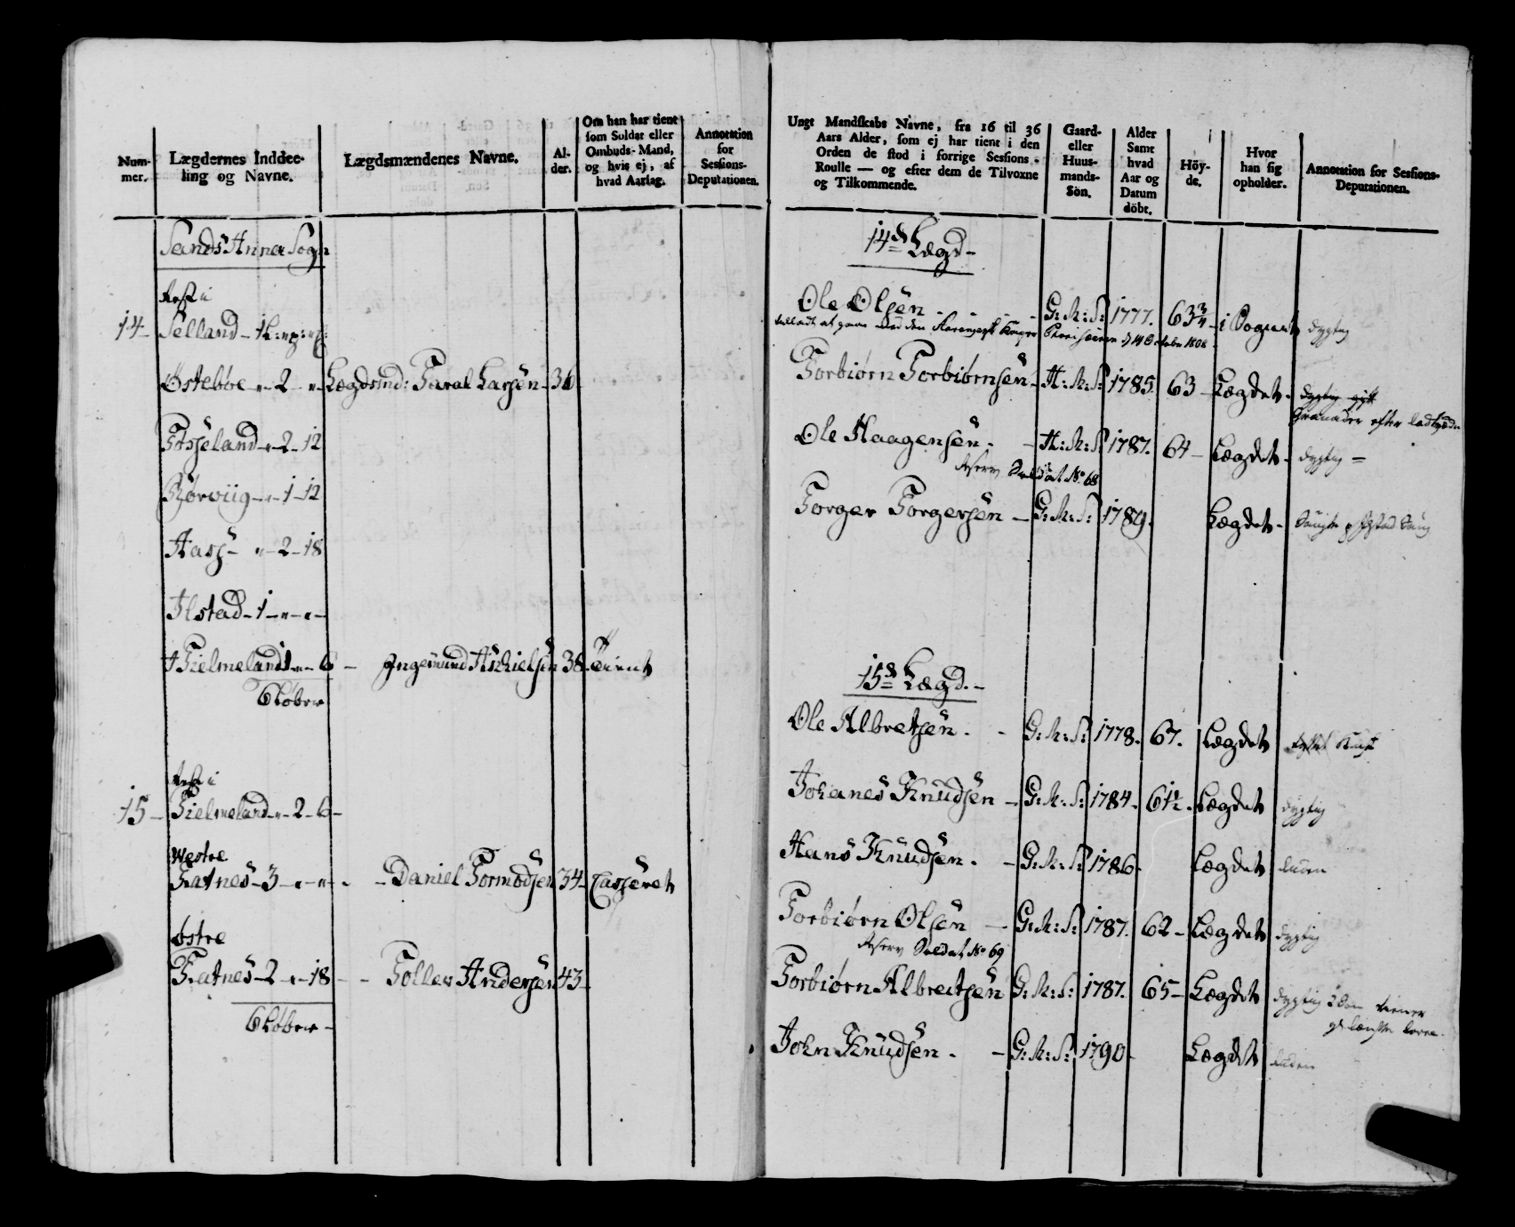 Num-
mer.
Lægdernes Inddee-
ling og Navne.
Lægdsmændenes Navne.
Al-
der.
Om han har tient
som Soldat eller
Ombuds-Mand,
og hvis ej, af
hvad Aarsag.
Annotation
for
Sessions-
Deputationen.
Sands Anna Sogn
Rest i
14 Selland - 1
Østebøe - 2 - Lægdsmd: Taral Larsen - 36
- 2 - 12
- 1 - 12
Aass - 2 - 18
Ilstad - 1
Fielmeland - 6 - Ingemund Askielsen 38 Tient
6 Løber
Rest i
15 - Fielmeland - 2 - 6 -
Westre
Fatnes - 3 - Daniel Tormodsen 34 Casseret
Østre
Fatnes - 2 - 18 - Tollev Andersen 43
6 Løber -
Ungt Mandskabs Navne, fra 16 til 36
Aars Alder, som ej har tient i den
Orden de stod i forrige Sessions-
Roulle — og efter dem de Tilvoxne
og Tilkommende.
Gaard-
eller
Huus-
mands-
Søn.
Alder
Samt
hvad
Aar og
Datum
döbt.
Höy-
de.
Hvor
han sig
opholder.
Annotation for Sessions-
Deputationen.
14de Lægd -
Ole Olsen - G: M: S: 1777. 63 3/4 - i Sognet dygtig
Torbiørn Torbiørnsen - H: M: S: 1785. 63 - Lægdet - dygtig
Ole Haagensen - H: M: S: 1787. 64 - Lægdet - dygtig =
Reserv Soldat No 68
Torger Torgersen - G: M: S: 1789. Lægdet -
15de Lægd. -
Ole Albretsen - G: M: S: 1778. 67. Lægdet
Johanes Knudsen - G: M: S: 1784. 61 1/2. Lægdet dygtig
Hans Knudsen - G: M: S: 1786. Lægdet liden
Torbiørn Olsen - G: M: S: 1787. 62 - Lægdet dygtig
Reserv Soldat No 69
Torbiørn Albretsen G: M: S: 1787. 65 - Lægdet dygtig
John Knudsen - G: M: S: 1790 - Lægdet liden